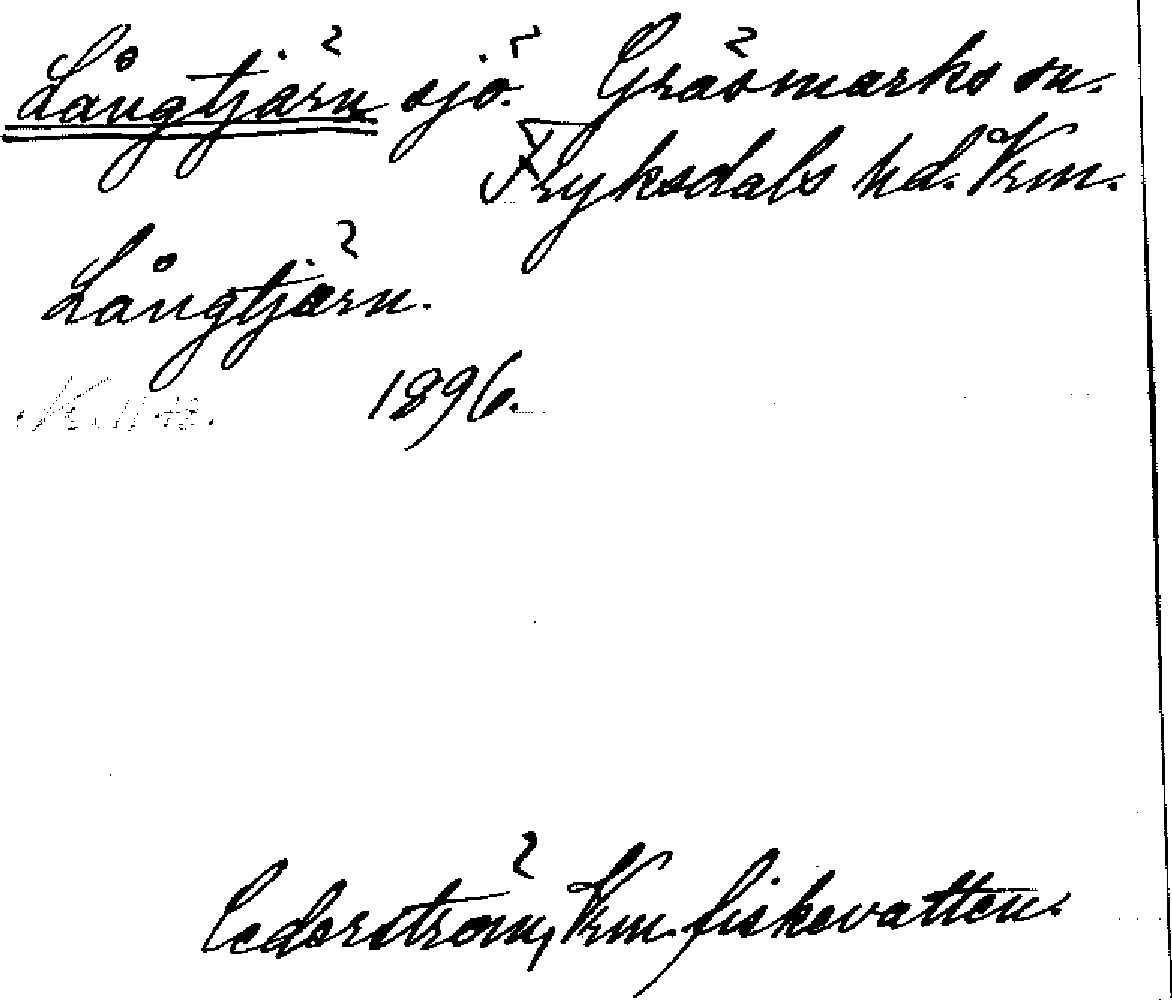 Långtjärn sjö. Gräsmarks sn.
Fryksdals hd. Vrm.
Långtjärn.
1896.
Cederström, Vrm. fiskevatten.